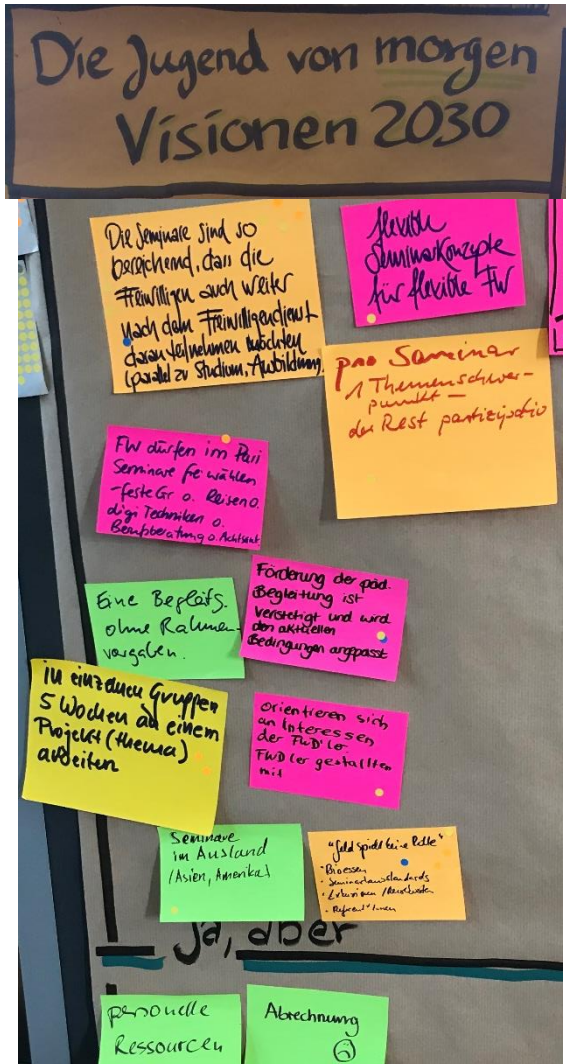 Die Jugend von morgen
Visionen 2030
Die Seminare sind so
bereichernd, dass die
Freiwilligen auch weiter
nach dem Freiwilligendienst
daran teilnehmen möchten
(parallel zu Studium, Ausbildung
flexible
Seminarkonzepte
für flexible FW
pro Seminar
1 Themenschwer-
punkt –
der Rest partizipativ
FW dürfen im Pari
Seminare frei wählen
- feste Gr o. Reisen o.
digi Techniken o.
Berufsberatung o. Achtsamk.
Eine Begleitg.
ohne Rahmen-
vorgaben.
Förderung der päd.
Begleitung ist
verstetigt und wird
den aktuellen
Bedingungen angepasst
in einzelnen Gruppen
5 Wochen an einem
Projekt (thema)
arbeiten
orientieren sich
an Interessen
der FWD'ler
FWD'ler gestallten
mit
Seminare
im Ausland
(Asien, Amerika)
"Geld spielt keine Rolle"
- Bioessen
- Seminarhausstandards
- Exkursionen /
- Referent*innen
ja, aber
personelle
Ressourcen
Abrechnung
☹